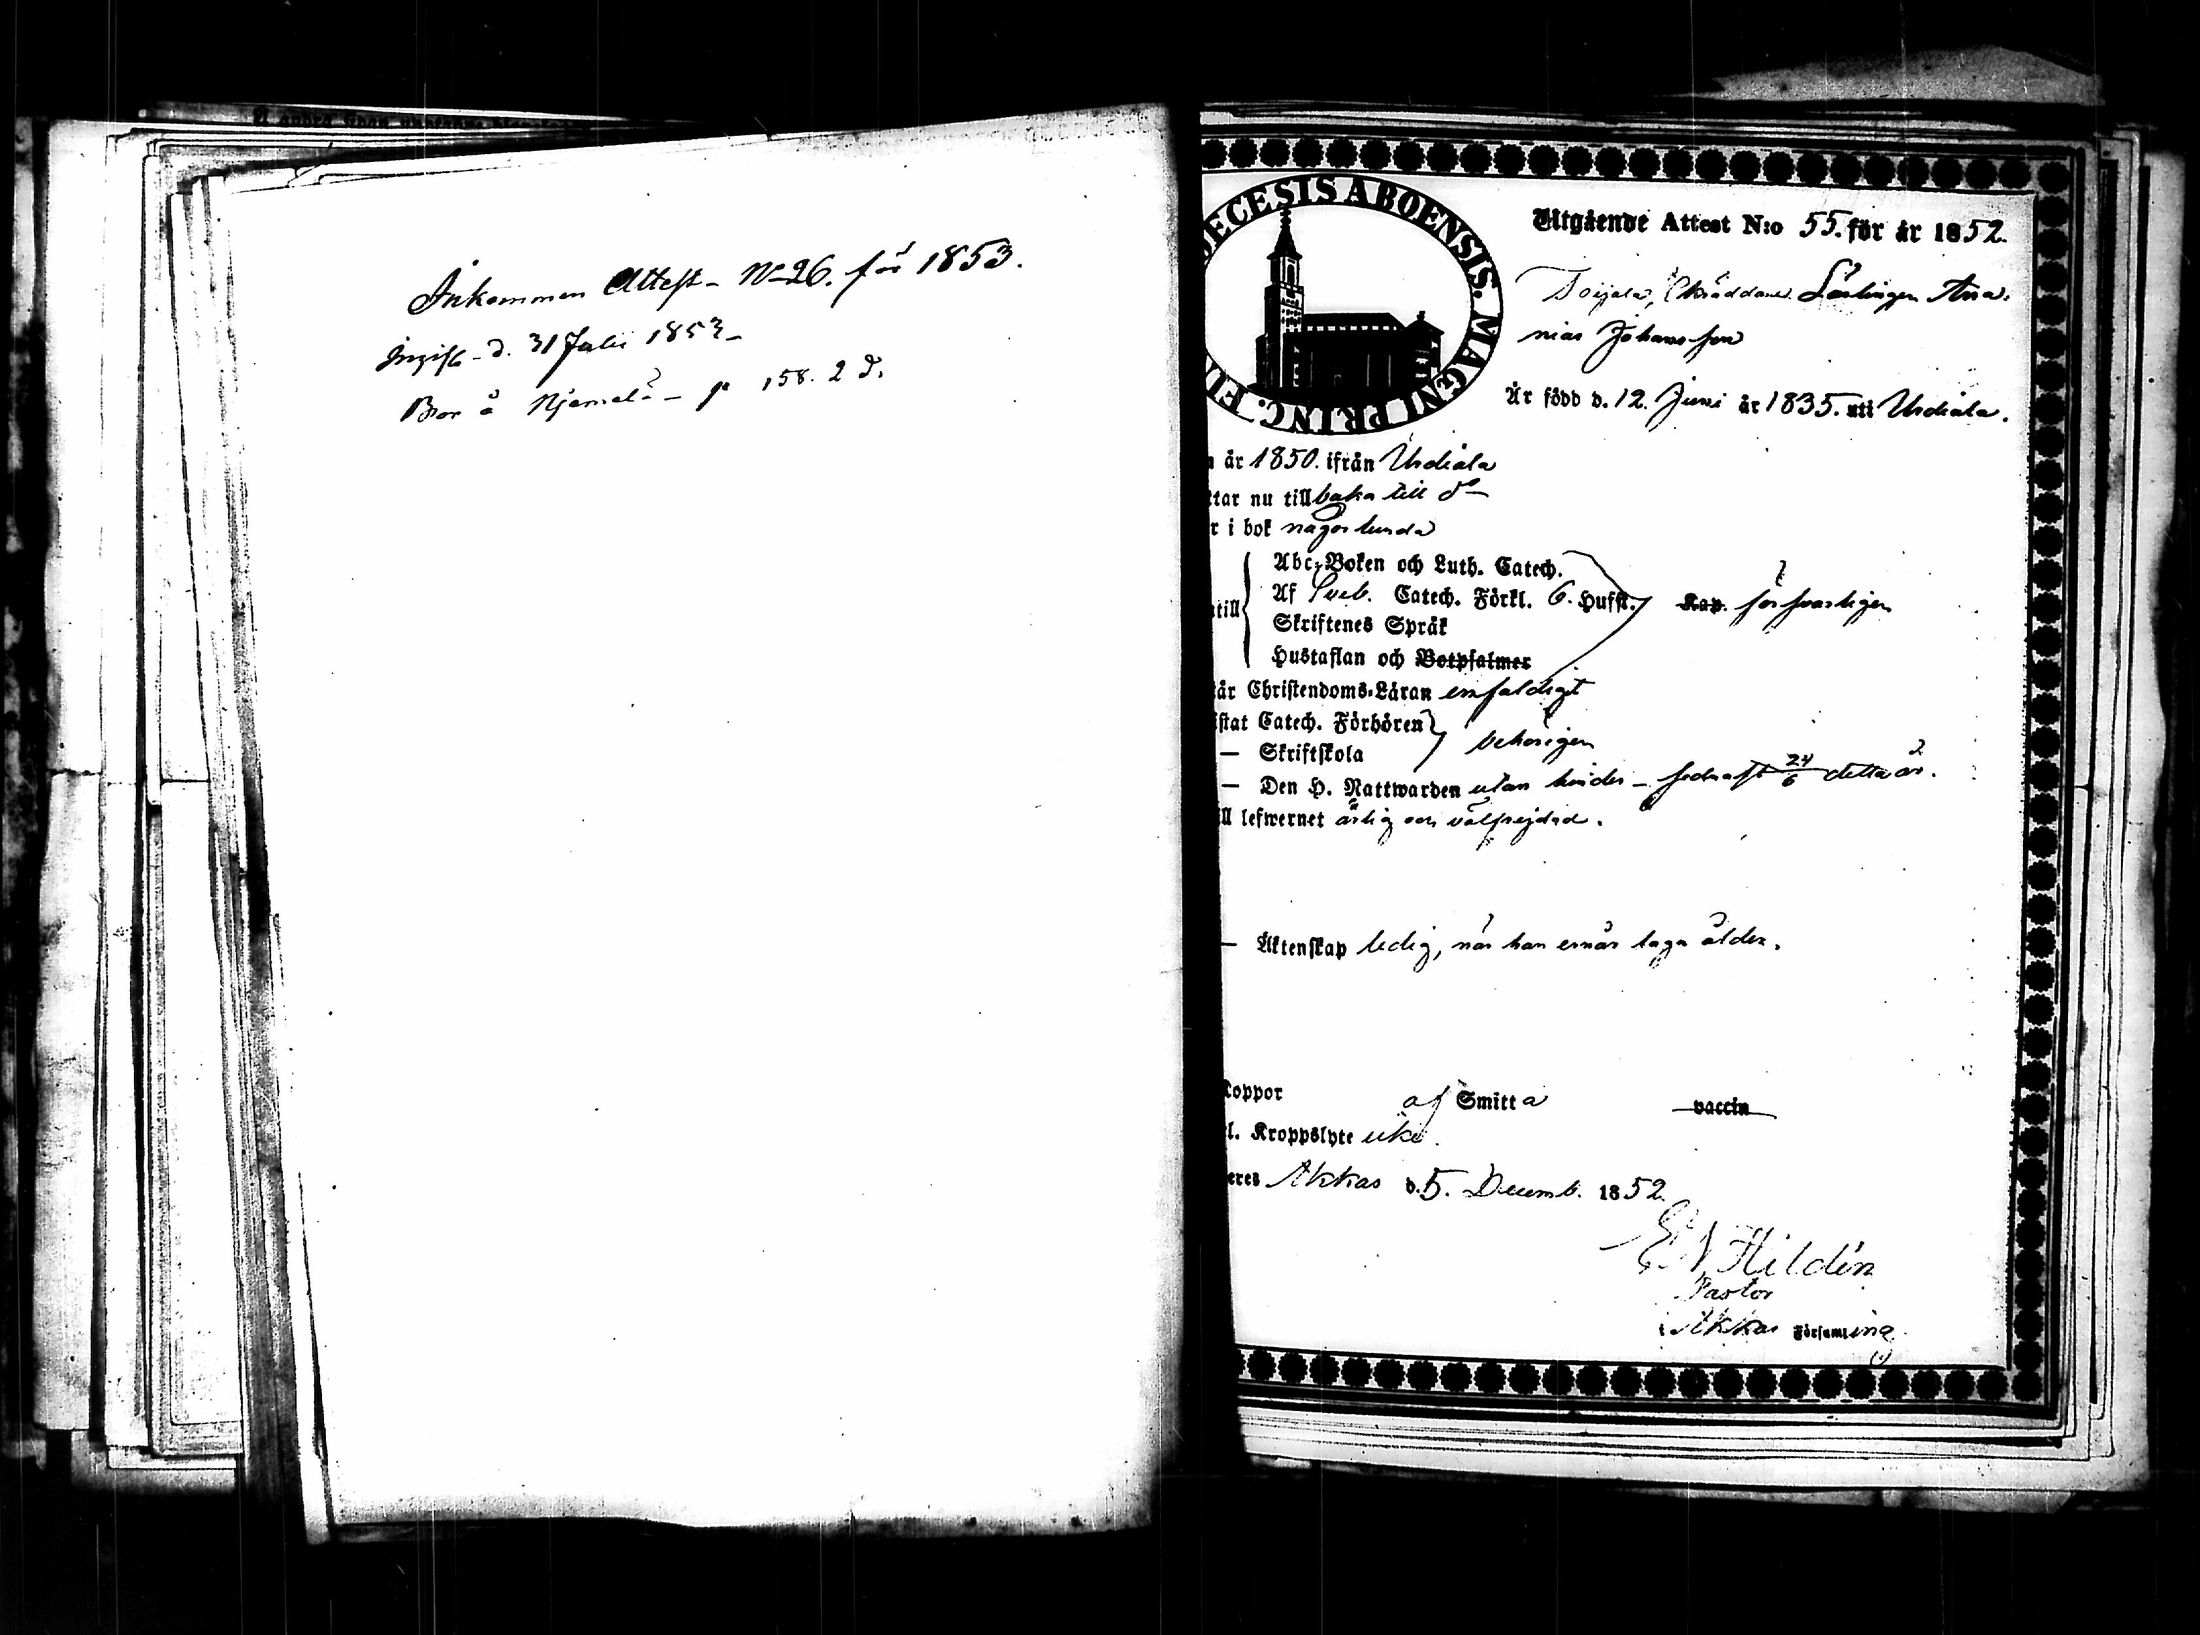 Inkommen Attest N 26. för 1853.
d. 31 Julii 1853
Bor å Njemelä p 158. 2 d.
DIŒCESIS ABOENSIS. MAGNI PRINC. FIN
Utgående Attest N:o 55. för år 1852.
Toijala, Skräddare Lärlingen Ana-
nias Johansson
Är född d. 12. Juni år 1835. uti Urdiala.
år 1850. ifrån Urdiala
ttar nu tillbaka till do
r i bok någorlunda
Abc-Boken och Luth. Catech.
Af Sveb. Catech. Förkl. 6. Hufst. Kap. försvarligen
till
Skriftenes Språk
Hustaflan och Botpsalmer
är Christendoms-Läran enfaldigt
istat Catech. Förhören
— Skriftskola behörigen
— Den H. Nattwarden utan hinder — sednast 24/6 detta år.
ill lefwernet ärlig och välfrejdad.
— Äktenskap ledig, när han ernår laga ålder.
Koppor af Smitta vaccin
l. Kroppslyte icke.
eres Akkas d. 5. Decemb. 1852.
Hildén
Pastor
i Akkas Församling